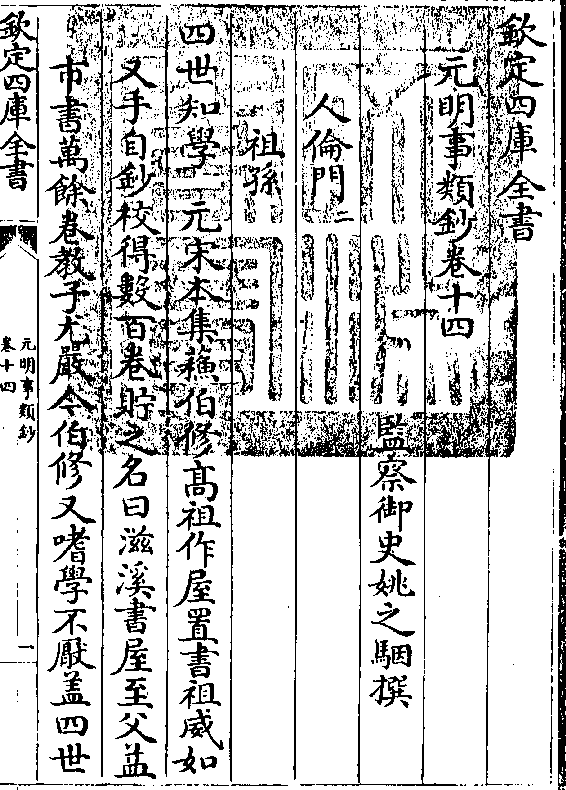 欽定四庫全書
元明事類鈔卷十四
監察御史姚之駰撰
人倫門二
祖孫
四世知學 元宋本集蘓伯修髙祖作屋置書祖威如
又手自鈔校得數百卷貯之名曰滋溪書屋至父益
市書萬餘卷教子尤嚴今伯修又嗜學不厭盖四世
欽定四庫全書
元明事類鈔
卷十四
一